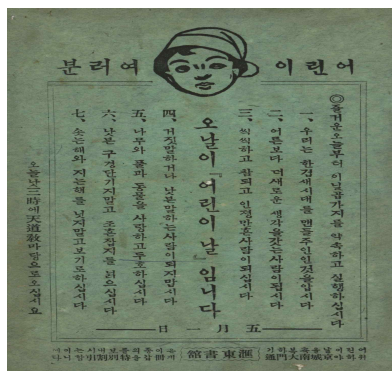 어린이 여러분
◎즐거운오늘부터 이닐곱가지를 약속하고 실행하십시다
一、우리는 한겹새시대를 맨들주인인것을압시다
二、어른보다 더새로운 생각을갖는사람이됩시다
三、씩씩하고 참되고 인정만흔사람이되십시다
오날이『어린이 날』임니다
四、거짓말하거나 낫분말하는사람이되지맙시다
五、나무와 풀과 동물을 사랑하고두호하십시다
六、낫분구경단기지말고 조흔잡지를 닑으십시다
七、솟는해와 지는해를 닛지말고보기로하십시다
오늘낫三時에天道敎마당으로오십시요
五月一日
京城南大門通
滙東書館